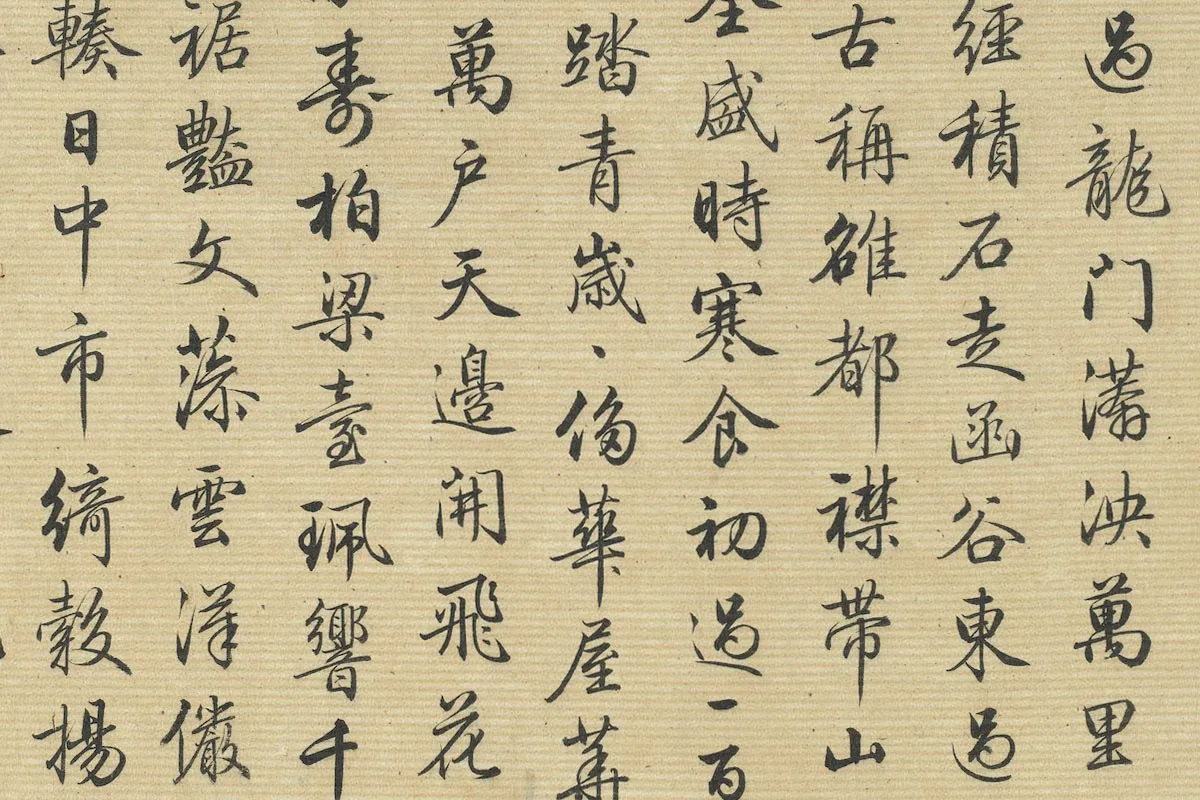 過龍门滿泱萬里
經積石走函谷東過
古稱雄都襟带山
盛時寒食初過一百
踏青歲丶侈華屋
萬户天邊開飛花
壽柏梁臺珮響千
裾豔文藻雲漢儼
輳日中市綺縠揚